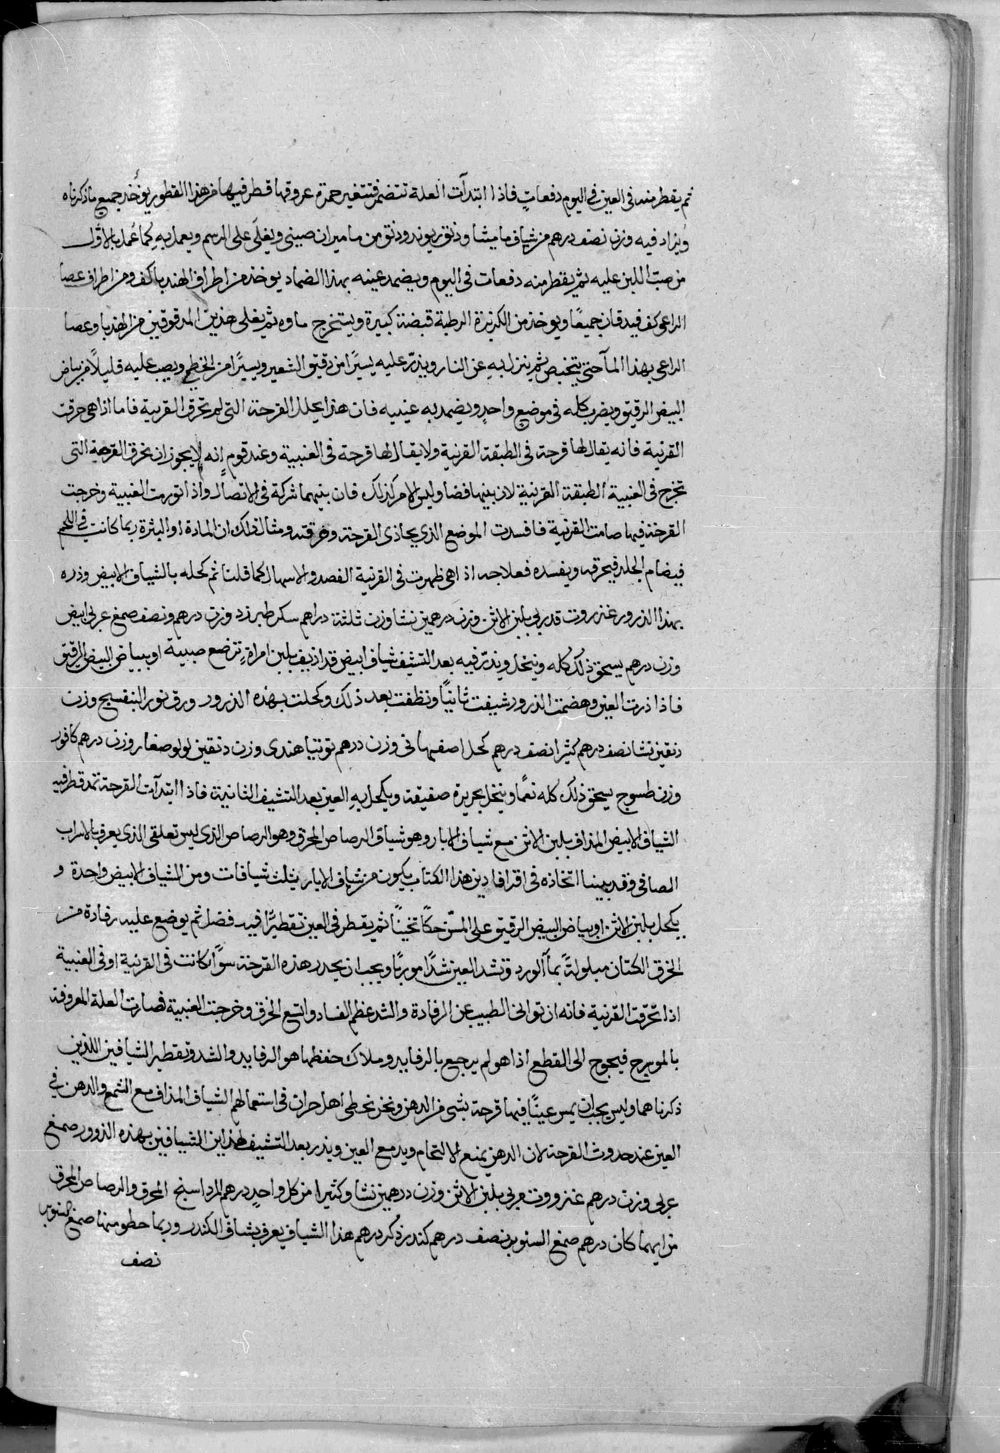 ثم يقطر منه فى العين فى اليوم دفعات فاذا ابتدأت العلة تنضم فتتغير حمرة عروقها قطر فيها من هذا القطور يؤخذ جميع ما ذكرناه
ويزاد فيه وزن نصف درهم من شياف ماميثا ودنق ريوند ودنق من ماميران صينى ويغلى على الرسم ويعمل به كما عمل بالاول
من صب اللبن عليه ثم يقطر منه دفعات فى اليوم ويضمد عينه بهذا الضماد يوخذ من اطراف الهندبا كف ومن اطراف عصا
الراعى كف فيدقان جميعا ويوخذ من الكزبرة الرطبة قبضة كبيرة ويستخرج ماوه ثم يغلى هذين المدقوقين من الهندبا وعصا
الراعى بهذا المآ حتى يتخبص ثم ينزل به عن النار ويذر عليه يسيرا من دقيق الشعير ويسيرا من الخطمى ويصب عليه قليلا من بياض
البيض الرقيق ويضرب كله فى موضع واحد ويضمد به عينيه فان هذا يحلل القرحة التى لم تخرق القرنية فاما اذا هى خرقت
القرنية فانه يقال لها قرحة فى الطبقة القرنية ولا يقال لها قرحة فى العنبية وعند قوم انه لا يجوز ان تخرق القرحة التى
تخرج فى العنبية الطبقة القرنية لان بينهما فضا وليس الامر كذلك فان بينهما شركة فى الاتصال واذا تورمت العنبية وخرجت
القرحة فيها صامت القرنية فافسدت الموضع الذى يحاذى القرحة وخرقته ومثال ذلك ان المادة او البثرة ربما كانت فى اللحم
فيضام الجلد فيخرقه ويفسده فعلاجه اذا هى ظهرت فى القرنية الفصد والاسهال كما قلنا ثم كحله بالشياف الابيض وذره
بهذا الذرور عنزروت قد ربى بلبن الاتن وزن درهمين نشا وزن ثلثة دراهم سكر طبرزد وزن درهم ونصف صمغ عربى ابيض
وزن درهم يسحق ذلك كله وينخل ويذر فيه بعد التشييف شياف ابيض قد اذيف بلبن امراة ترضع صبية او بياض البيض الرقيق
فاذا ذرت العين وهضمت الذرور شيفت ثانيا ونظفت بعد ذلك وكحلت بهذه الذرور ورق نور البنفسج وزن
دنقين نشا نصف درهم كثيرا نصف درهم كحل اصفهانى وزن درهم توتيا هندى وزن دنقين لولو صغار وزن درهم كافور
وزن طسوج يسحق ذلك كله نعما وينخل بحريرة صفيقة ويكحل به العين بعد التشييف الثانية فاذا ابتدأت القرحة تمد قطر فيه
الشياف الابيض المذاف بلبن الاتن مع شياف الابار وهو شياف الرصاص المحرق وهو الرصاص الذى ليس تعلقى الذى يعرف بالاسراب
الصافى وقد بينا اتخاذه فى اقرافادين هذا الكتاب يكون من شياف الابار ثلث شيافات ومن الشياف الابيض واحدة و
يكحل بلبن الاتن او بياض البيض الرقيق على المسن حكا ثخينا ثم يقطر فى العين تقطيرا فيه فضل ثم يوضع عليه رفادة من
الخرق الكتان مبلولة بمآ الورد وتشد العين شدا موربا ويجب ان يحذر هذه القرحة سوآ كانت فى القرنية او فى العنبية
اذا تخرقت القرنية فانه ان توانى الطبيب عن الرفادة والشد عظم الفساد واتسع الخرق وخرجت العنبية فصارت العلة المعروفة
بالمورسرج فيحوج الى القطع اذا هو لم يرجع بالرفايد وملاك حفظها هو الرفايد والشد وتقطير الشيافين اللذين
ذكرناهما وليس يجب ان يمس عينا فيها قرحة بشى من الدهن ونحن نخطى اهل حران فى استعمالهم الشياف المذاف مع الشمع والدهن فى
العين عند حدوث القرحة لان الدهن يمنع الالتحام ويدمع العين ويذر بعد التشييف لهذين الشيافين بهذه الذرور صمغ
عربى وزن درهم عنزروت مربى بلبن الاتن وزن درهمين نشا وكثيرا من كل واحد درهم المرداسنج المحرق والرصاص المحرق
من ايهما كان درهم صمغ السنوبر نصف درهم كندر ذكر درهم هذا الشياف يعرف بشياف الكندر وربما حطو منها صمغ السنوبر
نصف